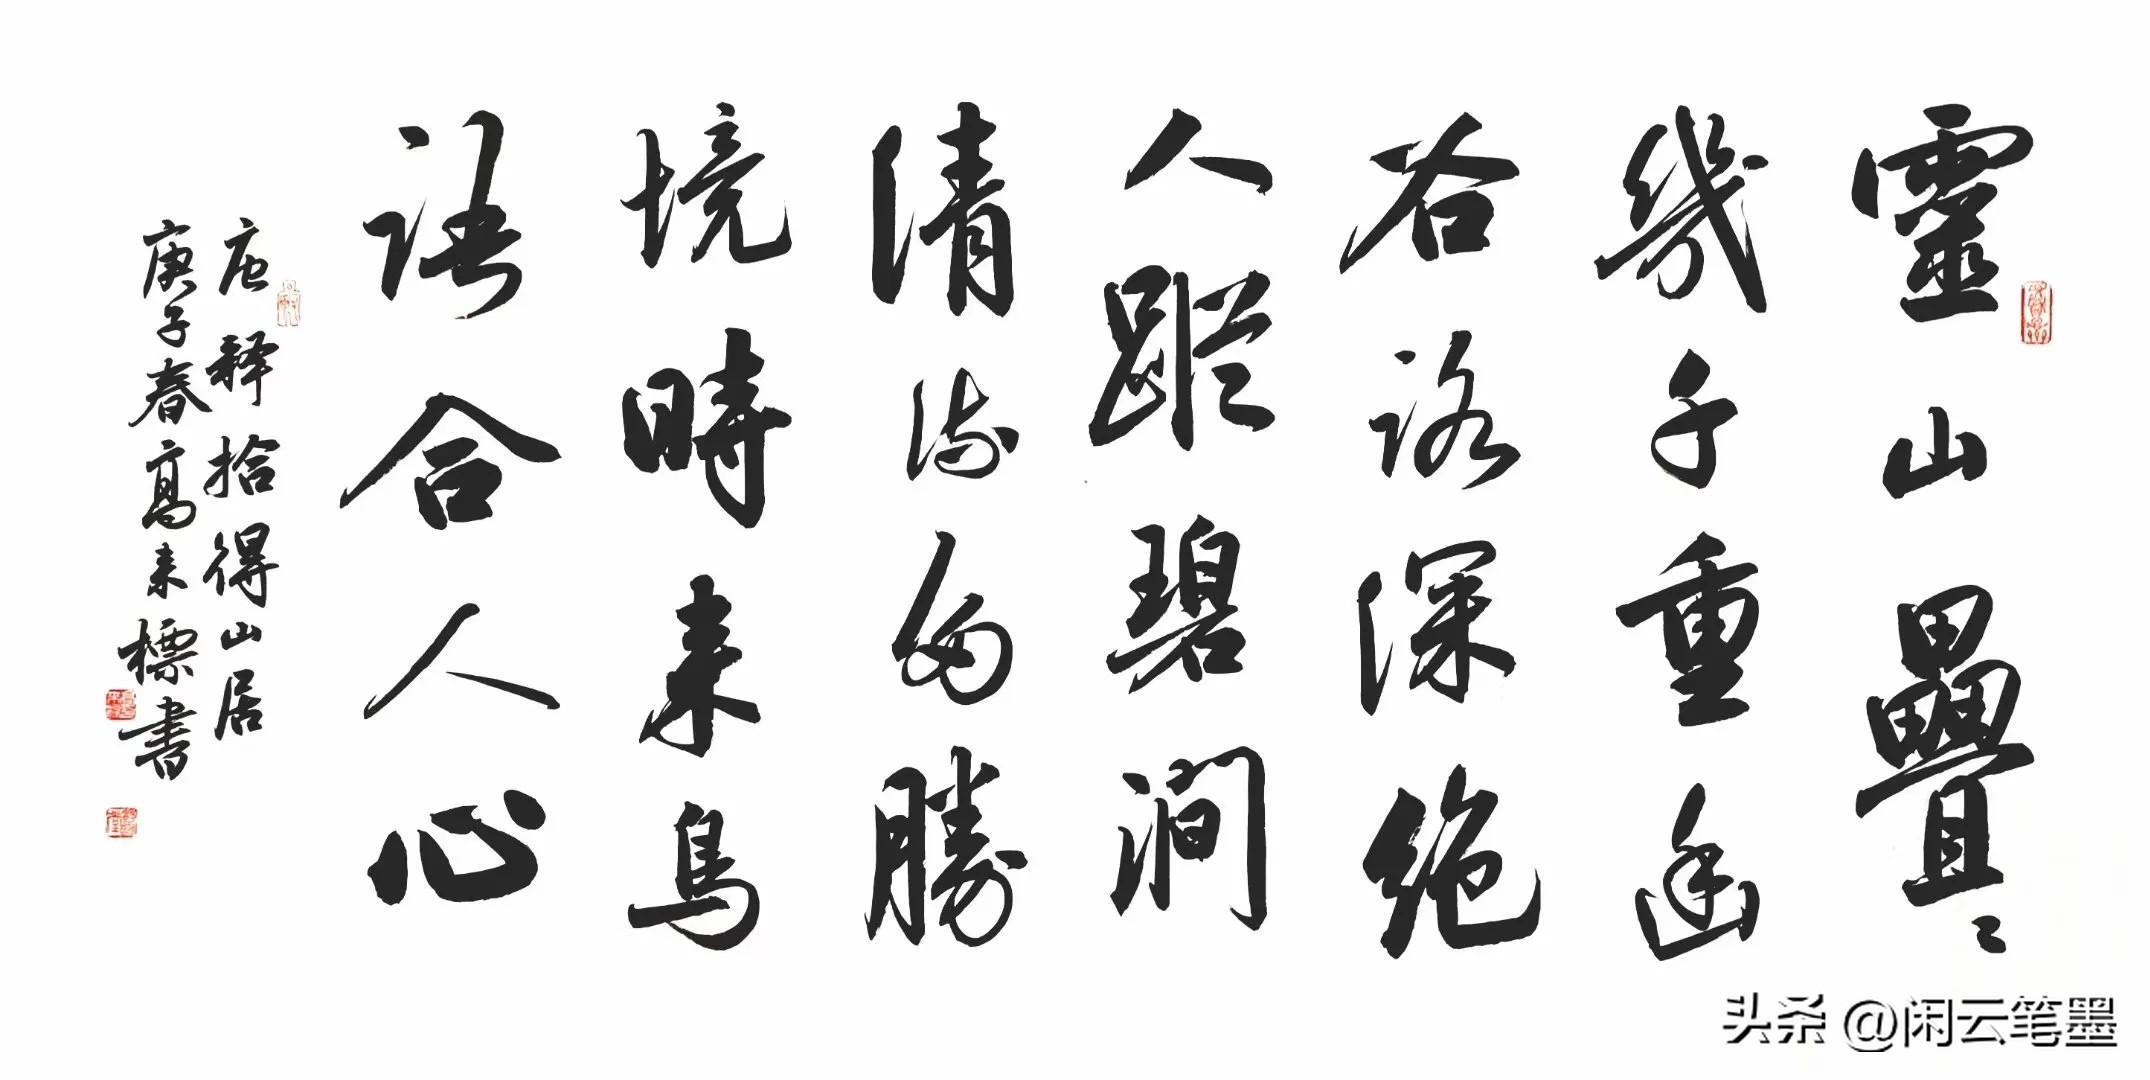 靈山疊々
幾千重幽
谷路深絶
人蹤碧澗
清流多勝
境時来鳥
語合人心
唐釋拾得山居
庚子春高来標書
头条 @闲云笔墨